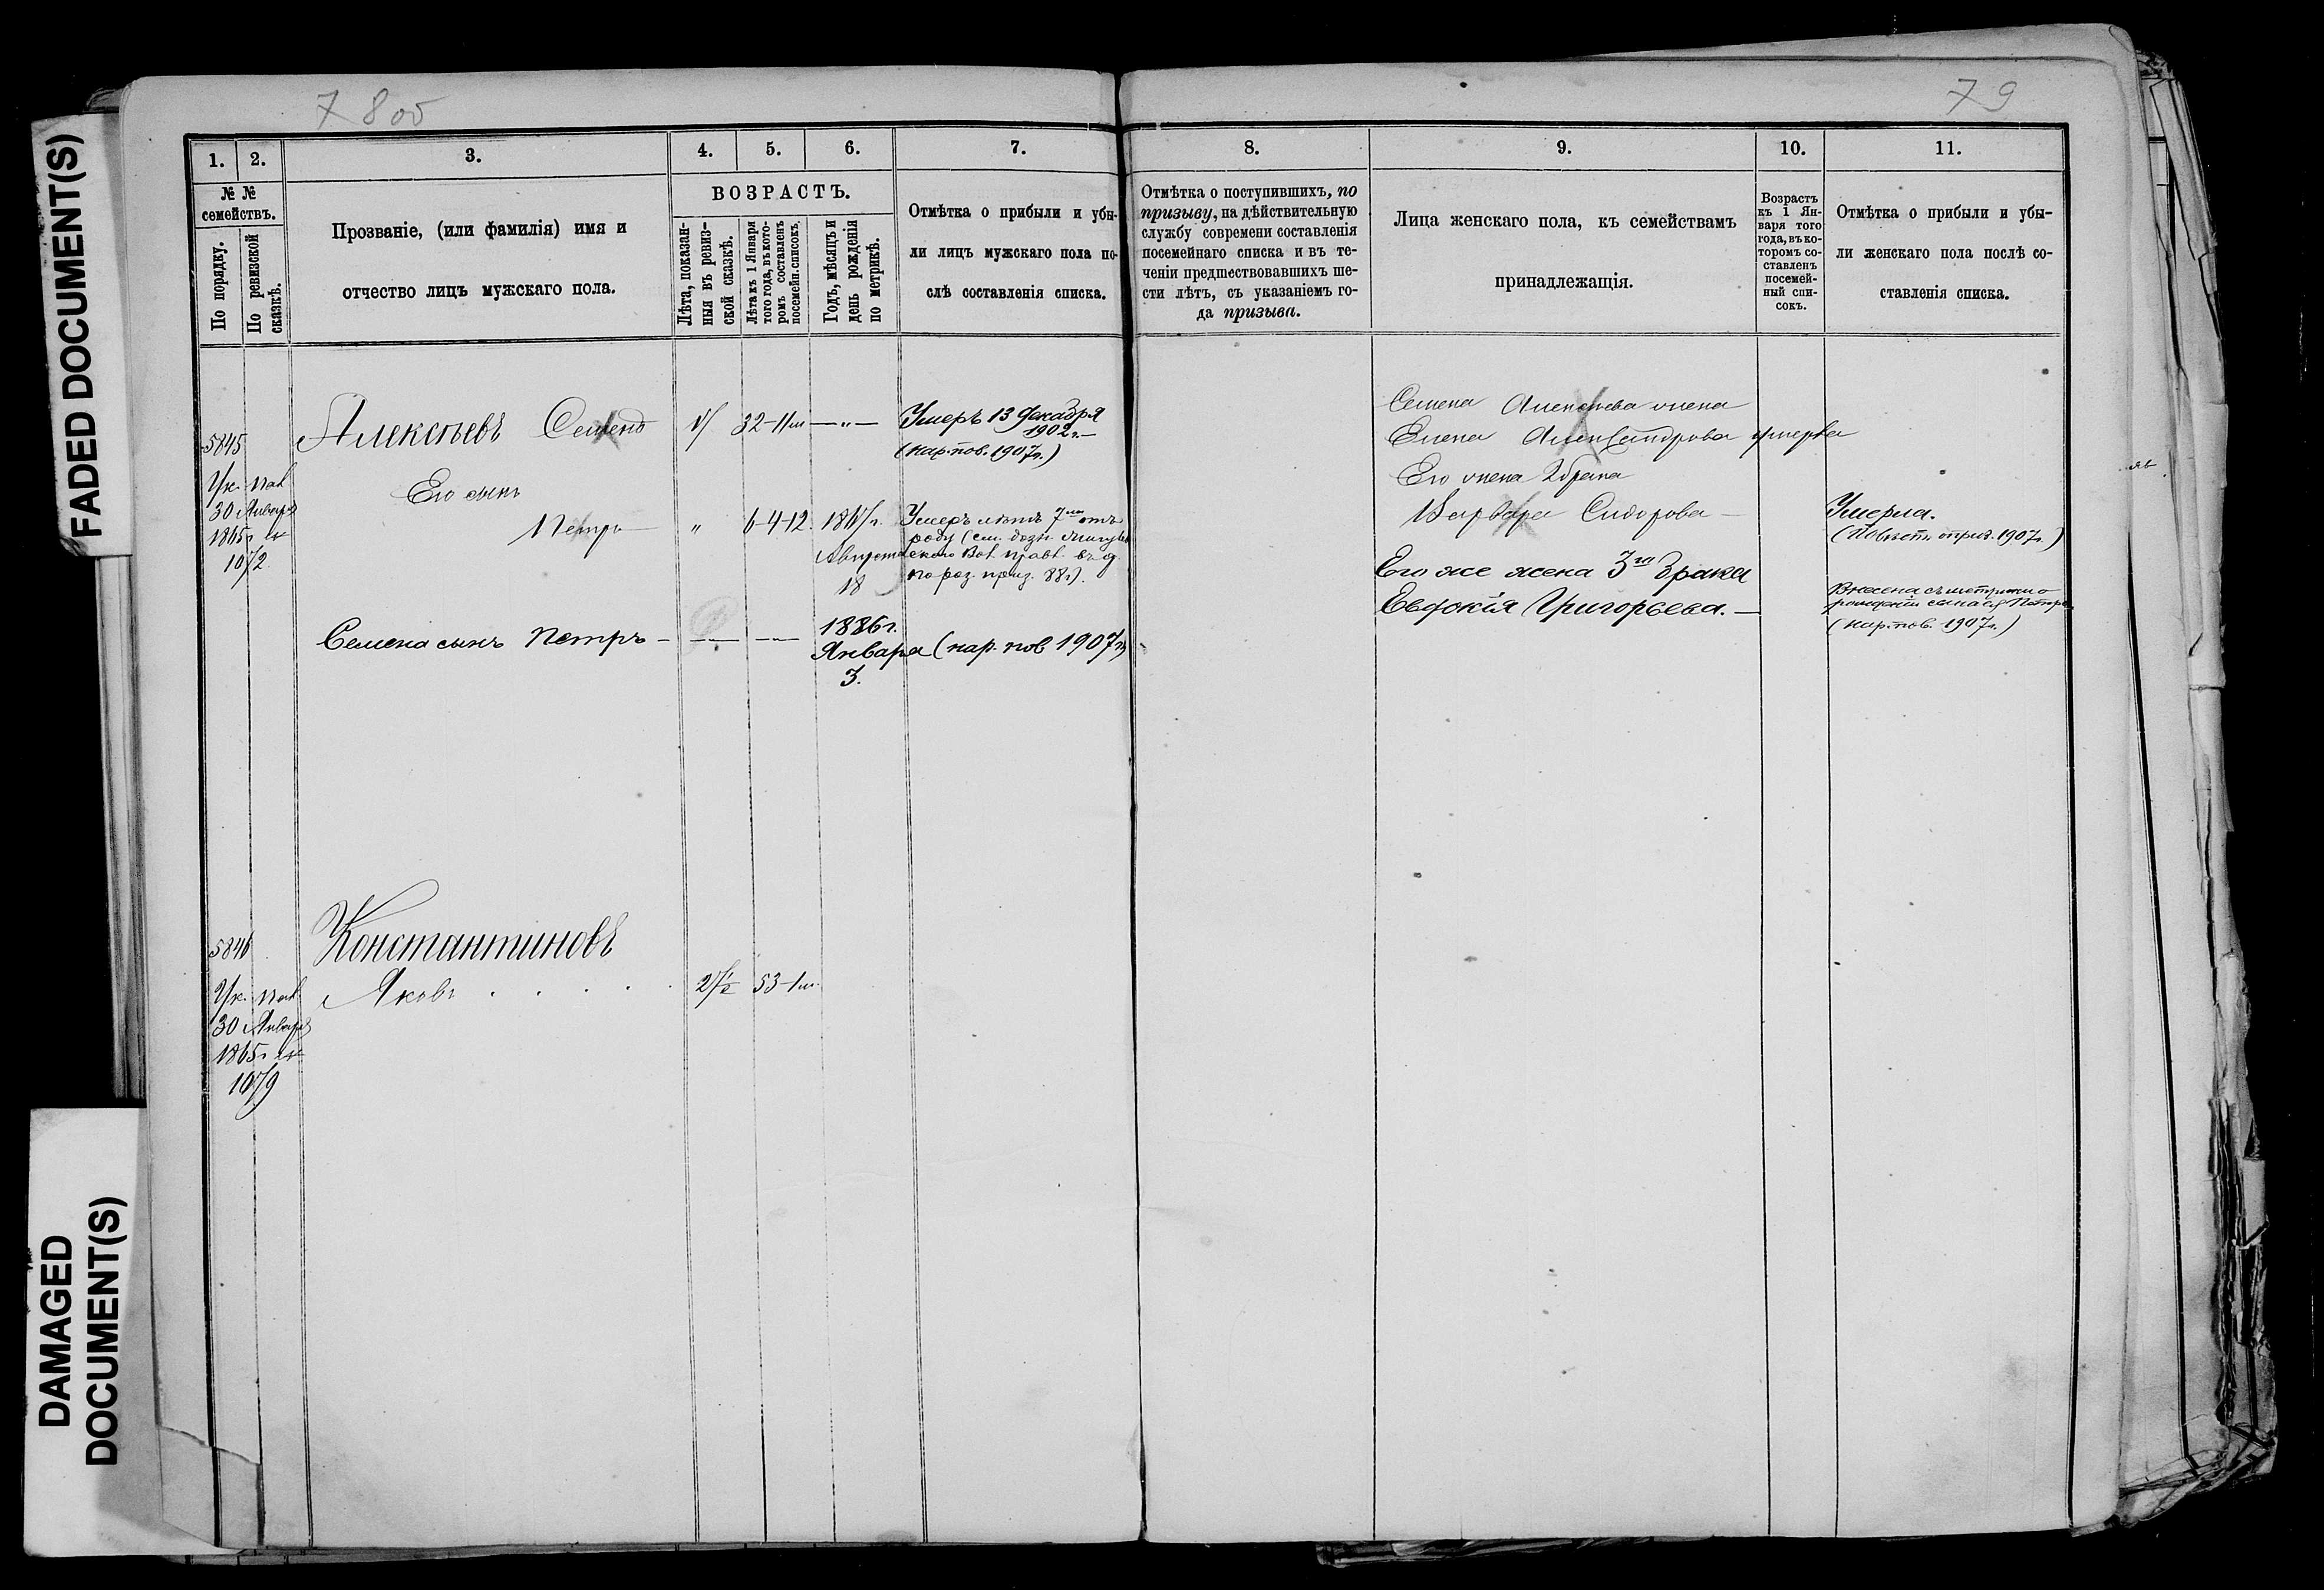 FADED DOCUMENT(S)
DAMAGED
DOCUMENT(S)
78 об
79
1.
2.
3.
4.
5.
6.
7.
8.
9.
10.
11.
№ №
семействъ.
По порядку.
По ревизской
сказкѣ.
Прозваніе, (или фамилія) имя и
отчество лицъ мужскаго пола.
ВОЗРАСТЪ.
Лѣта, показан-
ныя въ ревиз-
ской сказкѣ.
Лѣта къ 1 Января
того года, въ кото-
ромъ составленъ
посемейн. списокъ.
Годъ, мѣсяцъ и
день рожденія
по метрикѣ.
Отмѣтка о прибыли и убы-
ли лицъ мужскаго пола по-
слѣ составленія списка.
Отмѣтка о поступившихъ, по
призыву, на дѣйствительную
службу современи составленія
посемейнаго списка и въ те-
ченіи предшествовавшихъ ше-
сти лѣтъ, съ указаніемъ го-
да призыва.
Лица женскаго пола, къ семействамъ
принадлежащія.
Возрастъ
къ 1 Ян-
варя того
года, въ ко-
торомъ со-
ставленъ
посемей-
ный спи-
сокъ.
Отмѣтка о прибыли и убы-
ли женскаго пола послѣ со-
ставленія списка.
5845
Ук.
30 Января
1865г
1072
Алексѣевъ Семенъ
32-11м —„—
Умеръ 13 декабря
1902г.—
(нар. пов. 1907г.)
Его сынъ
Петръ
„ 6-4-12
Августа
18
Умеръ лѣтъ 7ми отъ
роду (см. дозн.
по роз. приз. 88г).
Семена сынъ Петръ —
1886г.
Января
3.
(нар. пов 1907г)
Семена Алексѣева жена
Елена Александрова умерла
Его жена 2 брака
Варвара Сидорова —
Умерла.
(Повѣстк. 1907г.)
Его же жена 3го брака
Евдокія Григорьева. —
Внесена съ метрики о
рожденіи сына ея Петра
(нар. пов. 1907г.)
5846
Ук.
30 Января
1865г
1079
Константиновъ
Яковъ . . . . .
53-1м.